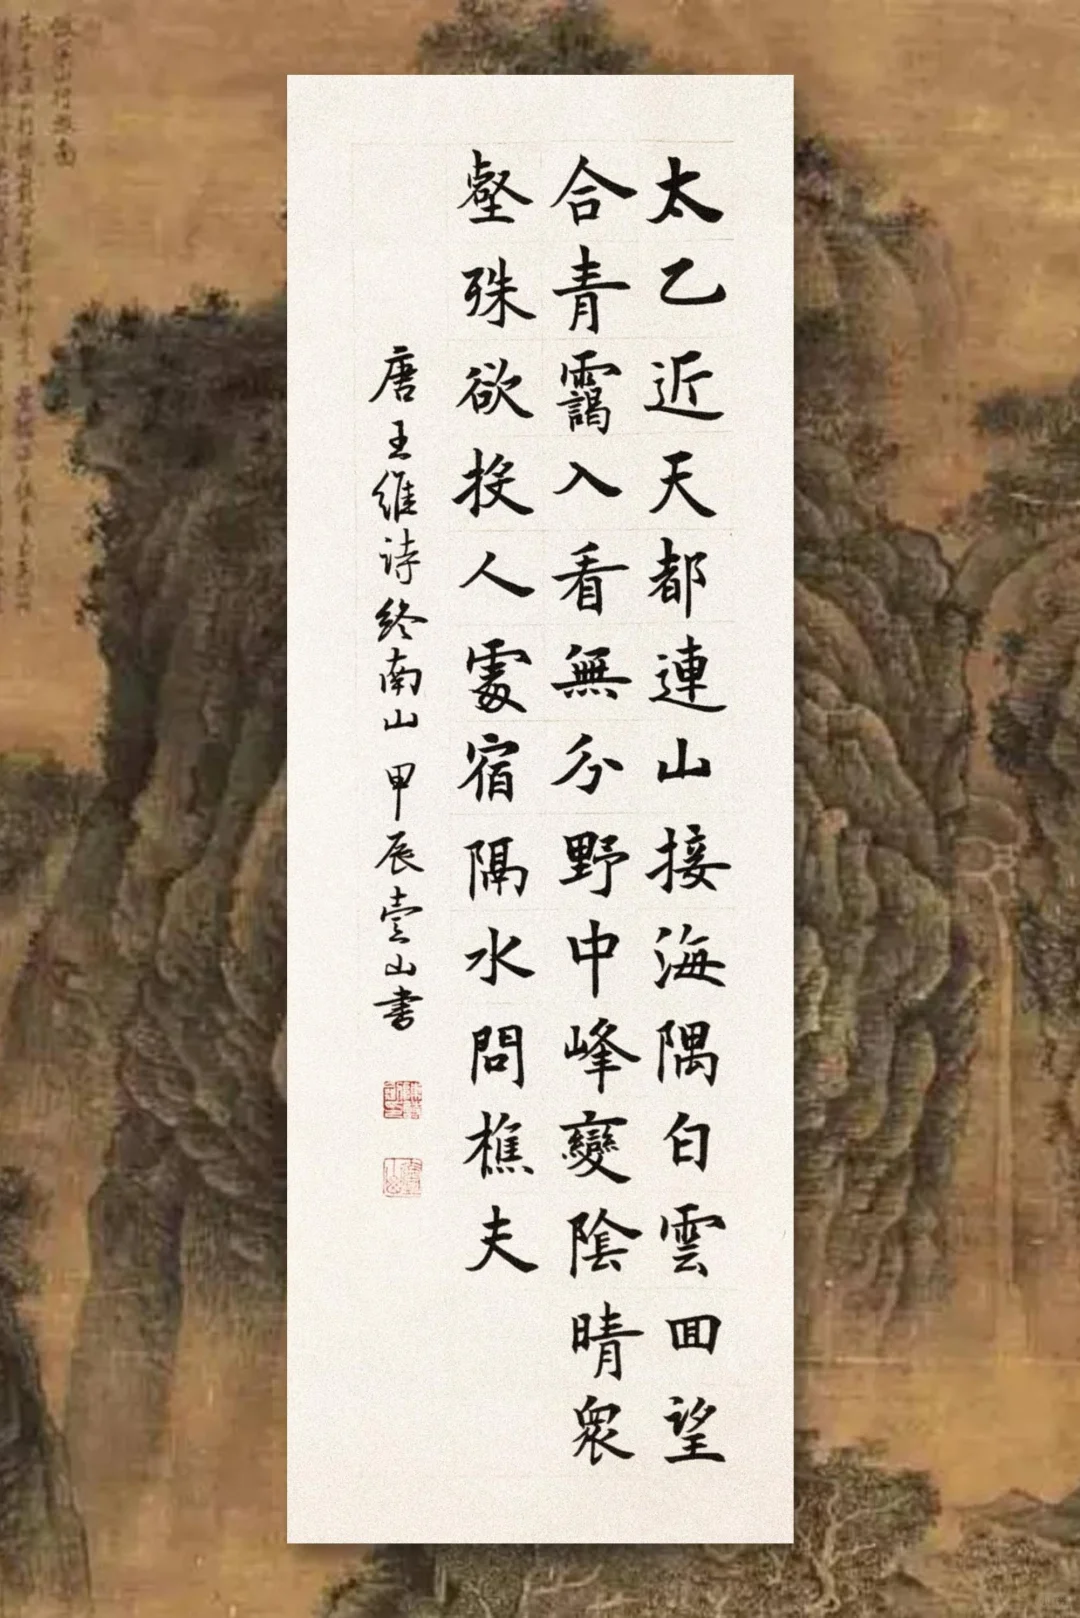 太乙近天都連山接海隅白雲回望
合青靄入看無分野中峰變陰晴衆
壑殊欲投人處宿隔水問樵夫
唐王維诗終南山甲辰壹山书